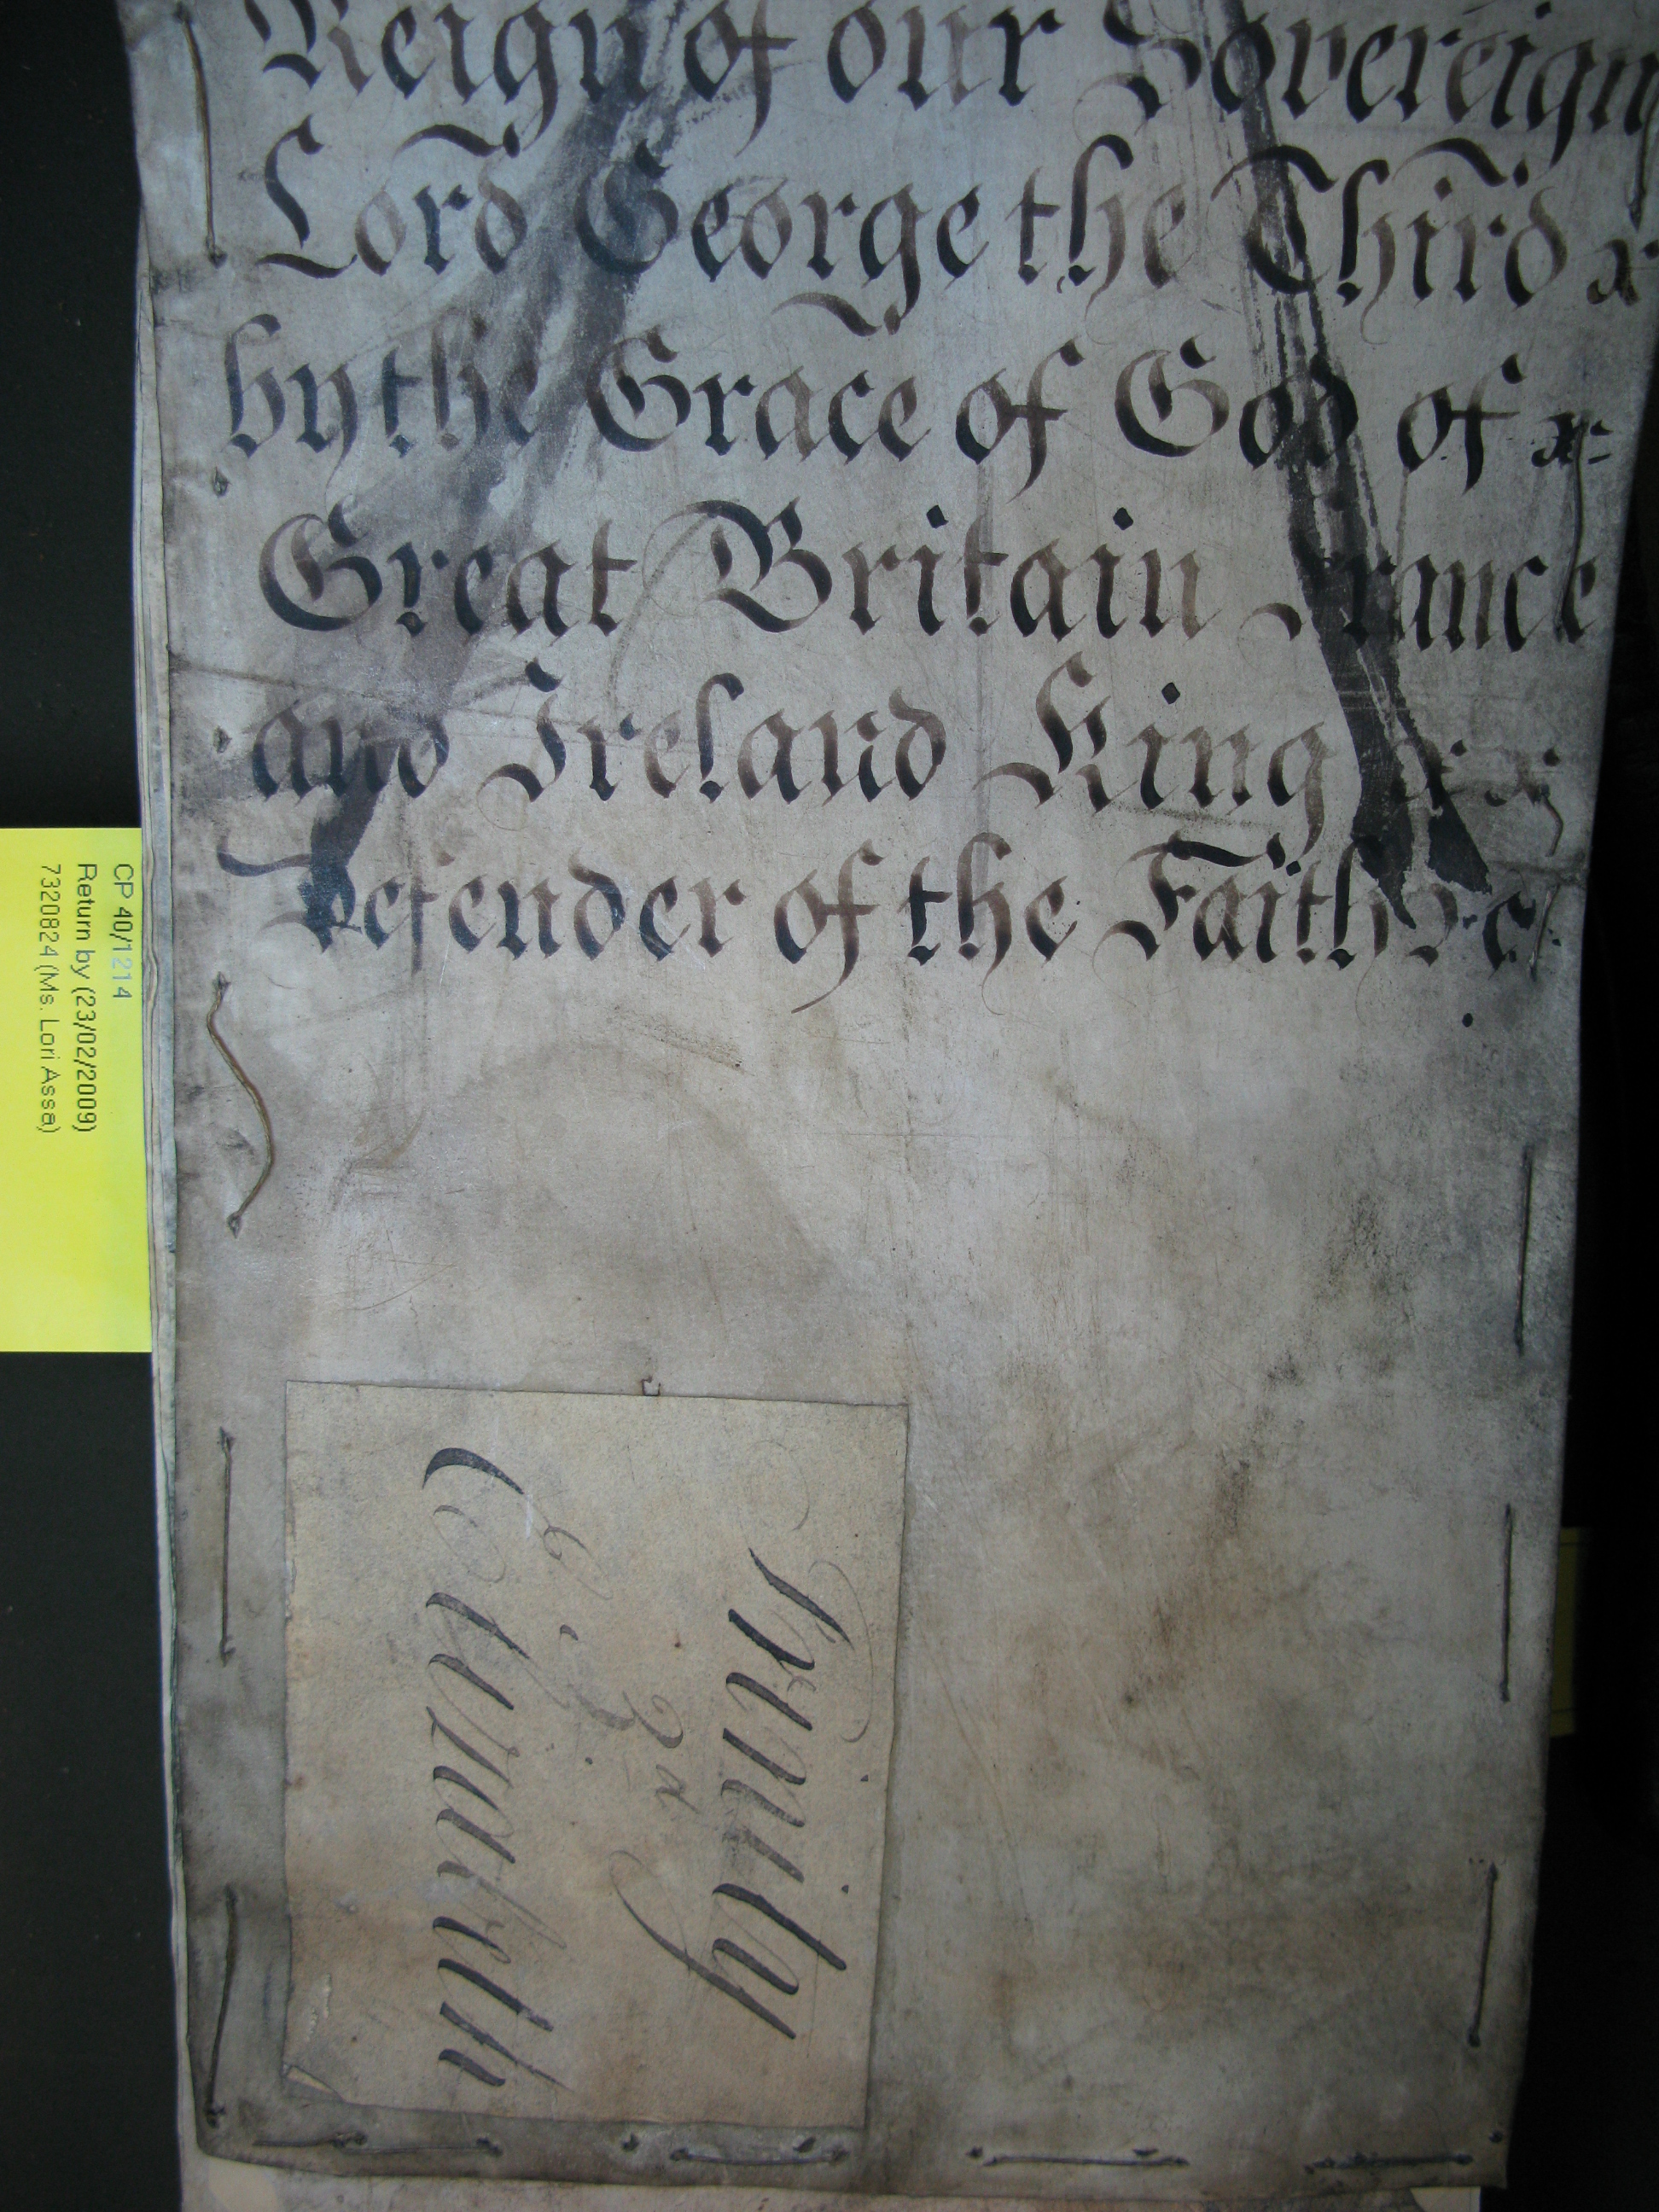 Reign of our Sovereign
Lord George the Third
by the Grace of God of
Great Britain France
and Ireland King
Defender of the Faith &c
CP 40/1214
Return by (23/02/2009)
7320824 (Ms. Lori Assa)
Trinity
2d